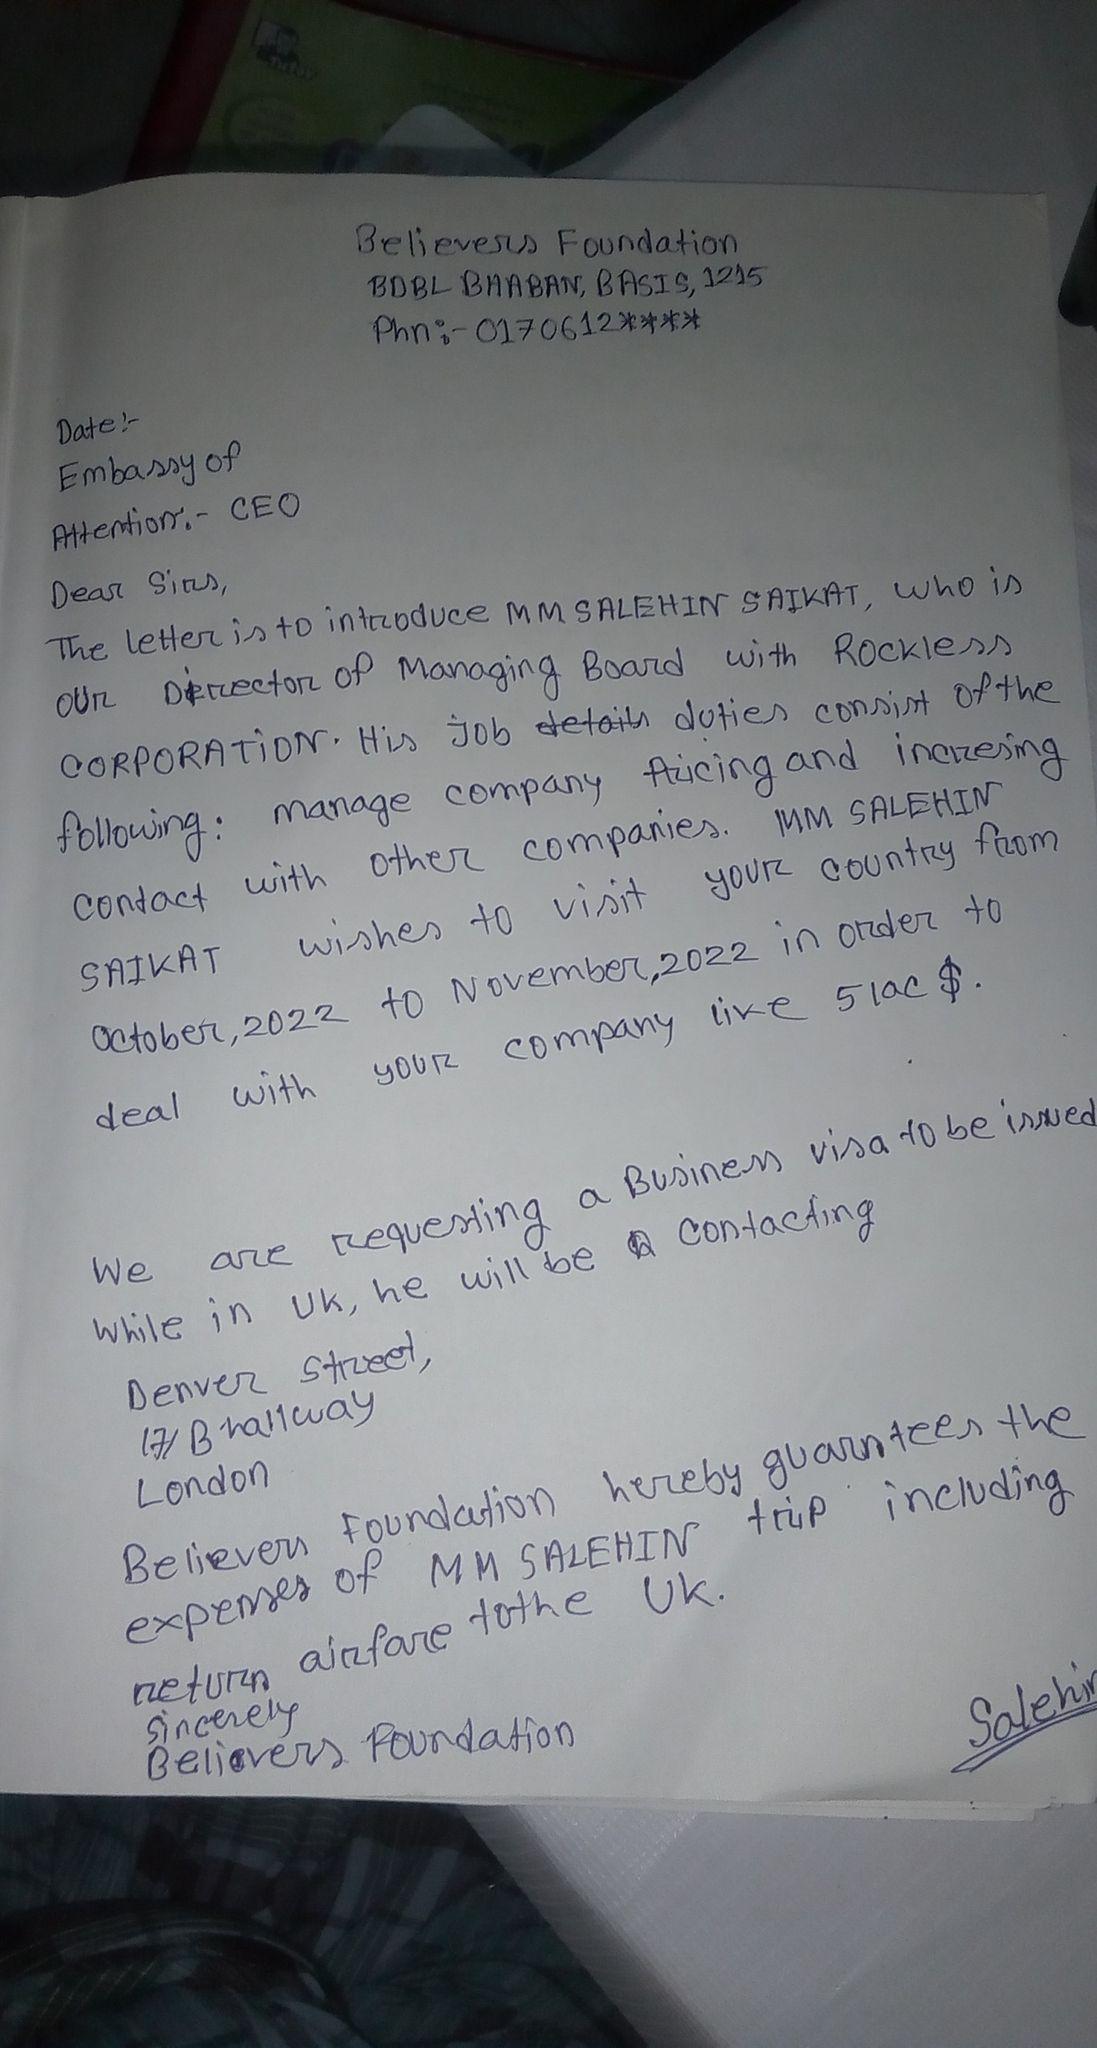 Believers Foundation
BDBL BHABAN, BASIS, 1215
Phn:- 0170612****
Date:-
Embassy of
Attention:- CEO
Dear Sirs,
The letter is to introduce MM SALEHIN SAIKAT, who is
our Dirrector of Managing Board with Rockless
CORPORATION. His job details duties consist of the
following: manage company Pricing and incresing
contact with other companies. MM SALEHIN
SAIKAT wishes to visit your country from
October, 2022 to November, 2022 in order to
deal with your company like 5 lac $.
We are requesting a Business visa to be issued
While in UK, he will be contacting
Denver Street,
17/B hallway
London
Believers Foundation hereby guarntees the
expenses of MM SALEHIN trip including
return airfare to the UK.
sincerely
Believers Foundation
Salehin